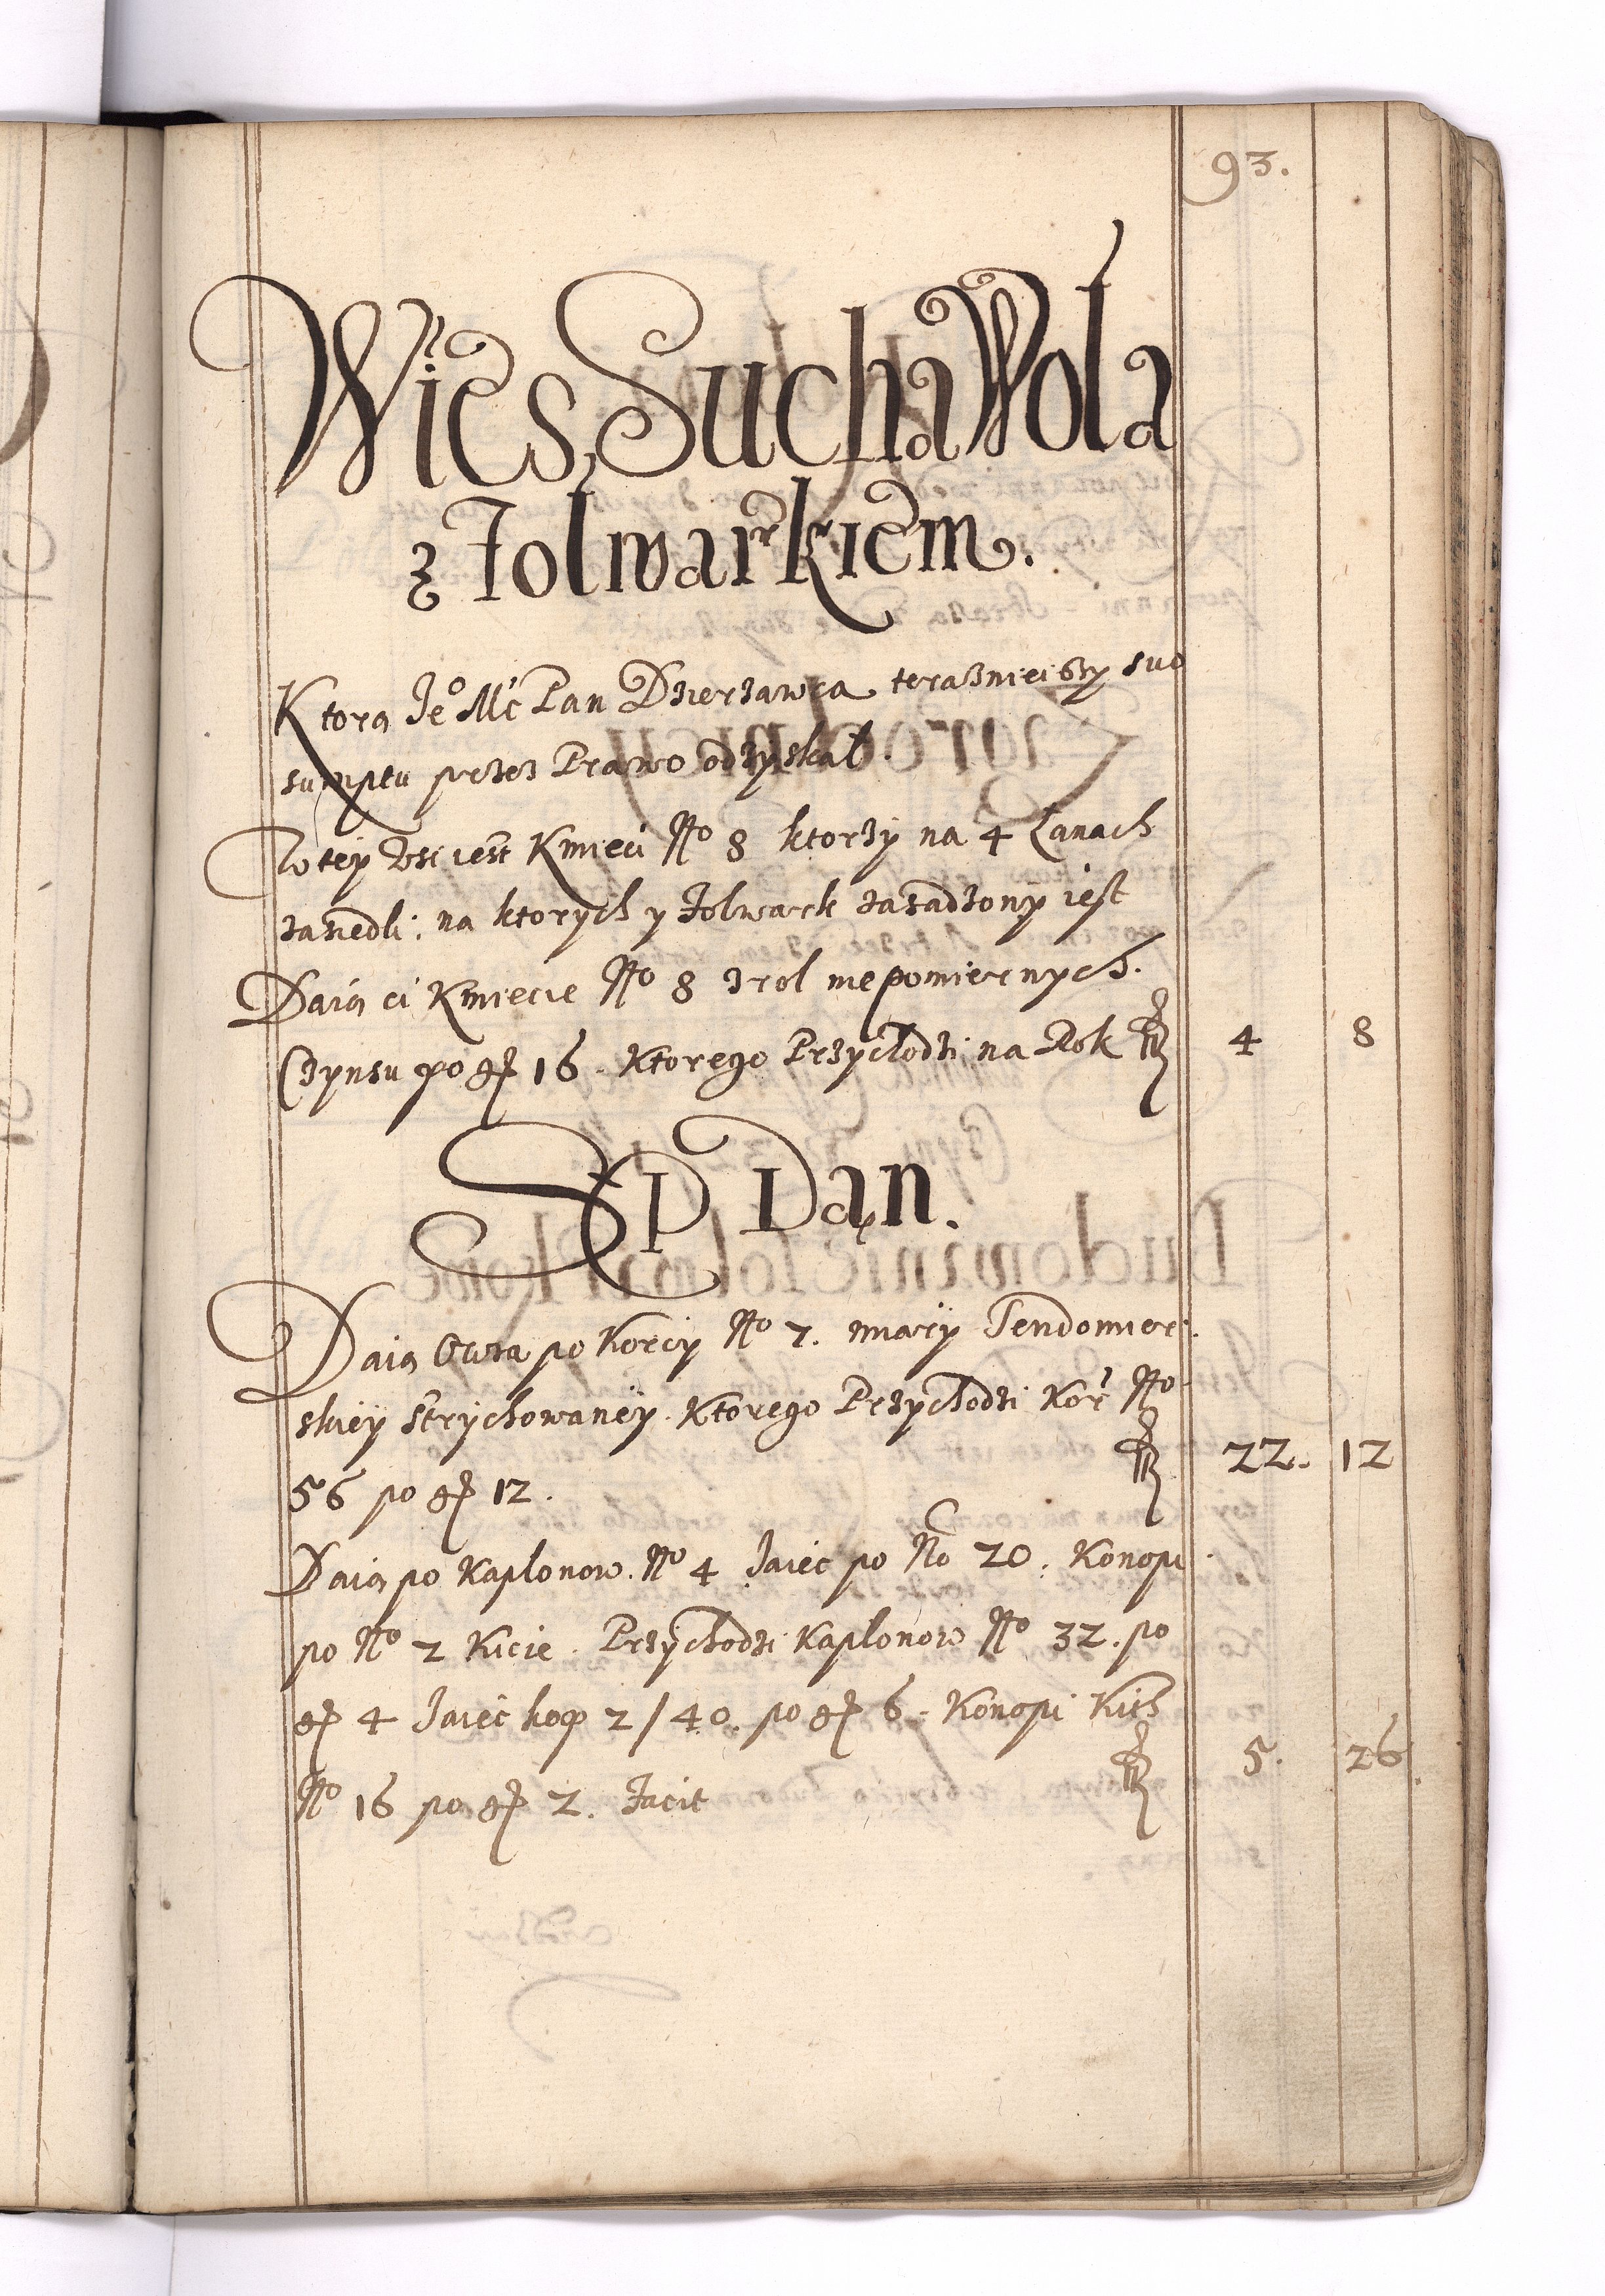 93.
Wies Sucha Wola
z Folwarkiem.
Ktorą Je⁰ Mć Pan Dzierzawca teraznieiszy suo
sumptu przez Prawo odzyskał.
W tey Wsi iest Kmieci No 8 ktorzy na 4 Łanach
zasiedli: na ktorych y Folwark zasadzony iest
Daią ci Kmiecie No 8 z rol niepomiernych.
Czynsu po gr 16. Ktorego Przychodzi na Rok 4 8
SP Dan.
Daią Owsa po Korcy No 7. miary Sendomier:
skiey strychowaney. Ktorego Przychodzi Kor No
56 po gr 12. 22. 12
Daią po Kapłonow. No 4 Jaiec po No 20: Konopi
po No 2 Kicie. Przychodzi Kapłonow No 32. po
gr 4 Jaiec kop 2/40. po gr 6. Konopi Kith
No 16 po gr 2. Facit 5. 26